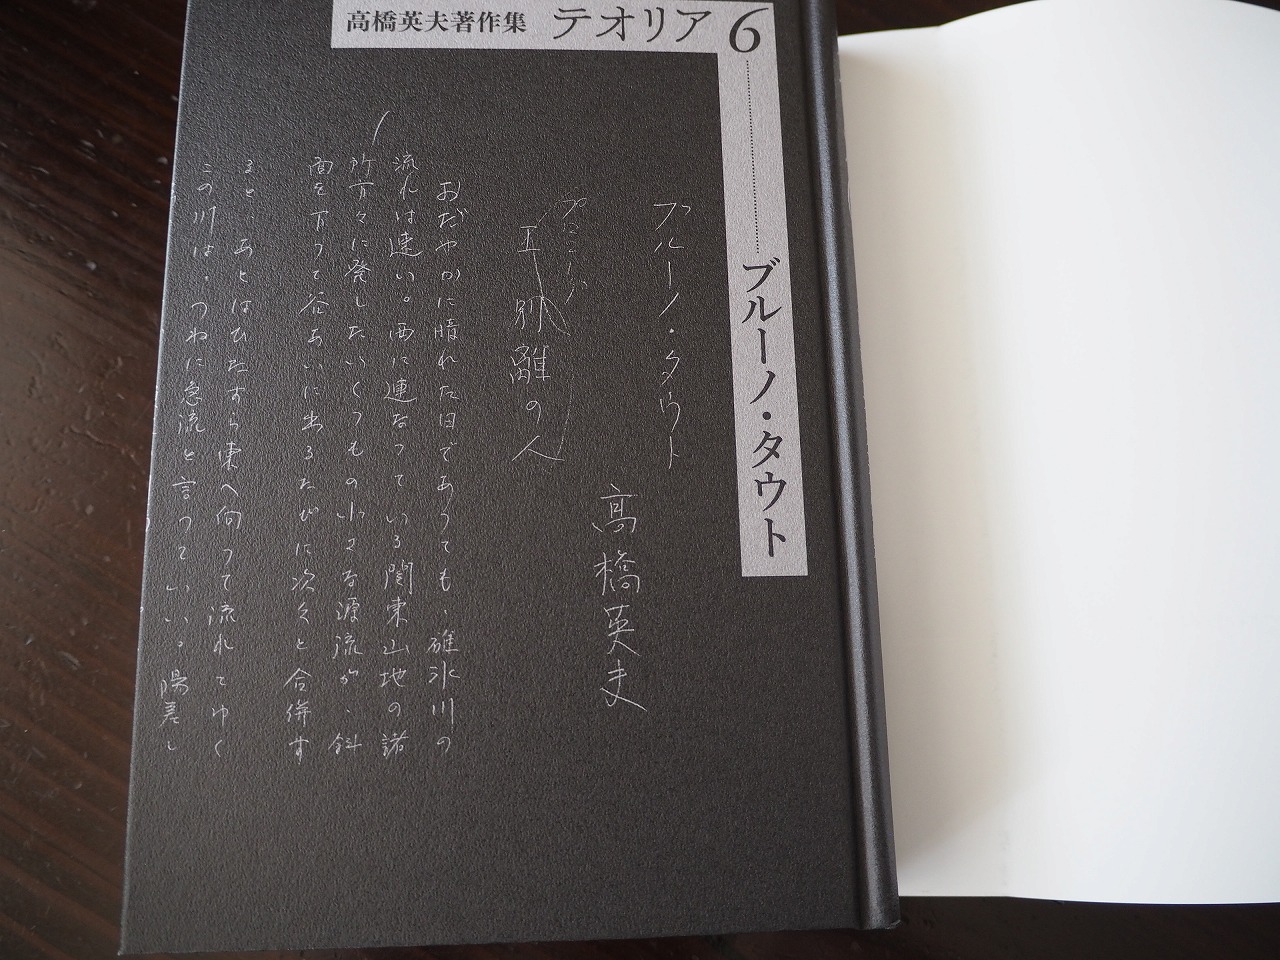 高橋英夫著作集 テオリア 6
ブルーノ・タウト
ブルーノ・タウト
距離の人
高橋英夫
おだやかに晴れた日であっても、碓氷川の
流れは速い。西に連なっている関東山地の諸
所方々に発したいくつもの小さな源流が、斜
面を下って谷あいに出るたびに次々と合併す
ると、あとはひたすら東へ向って流れてゆく
この川は、つねに急流と言っていい。陽差し